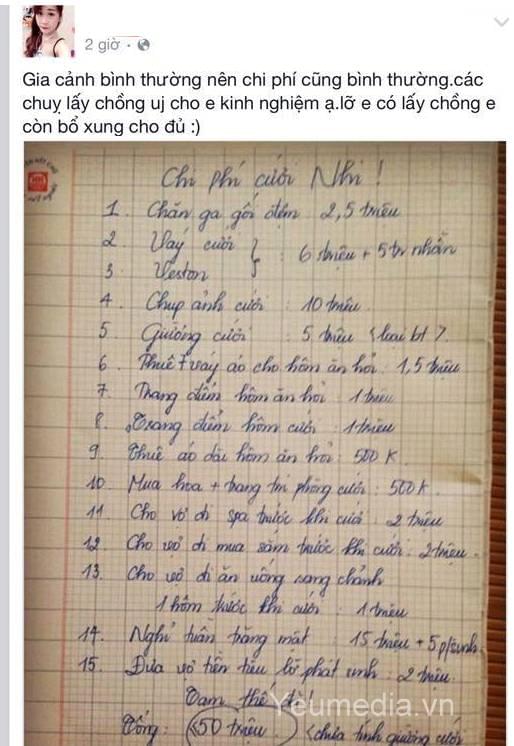 2 giờ ·
Gia cảnh bình thường nên chi phí cũng bình thường.các
chuỵ lấy chồng uj cho e kinh nghiệm ạ.lỡ e có lấy chồng e
còn bổ xung cho đủ :)
Chi phí cưới Nhi !
1. Chăn ga gối đệm 2,5 triệu
2. Váy cưới
: 6 triệu + 5tr nhẫn
3. Veston
4. Chụp ảnh cưới : 10 triệu
5. Giường cưới : 5 triệu < loại bt >
6. Thuê váy áo cho hôm ăn hỏi : 1,5 triệu
7. Trang điểm hôm ăn hỏi : 1 triệu
8. Trang điểm hôm cưới : 1 triệu
9. Thuê áo dài hôm ăn hỏi : 500 K
10. Mua hoa + trang trí phòng cưới : 500 K.
11. Cho vợ đi spa trước khi cưới : 2 triệu
12. Cho vợ đi mua sắm trước khi cưới : 2 triệu.
13. Cho vợ đi ăn uống sang chảnh
1 hôm trước khi cưới : 1 triệu
14. Nghỉ tuần trăng mật : 15 triệu + 5 p/sinh
15. Đưa vợ tiền tiêu lỡ phát sinh : 2 triệu
Tạm thế đã !
Yeumedia.vn
Tổng : 50 triệu < chưa tính giường cưới